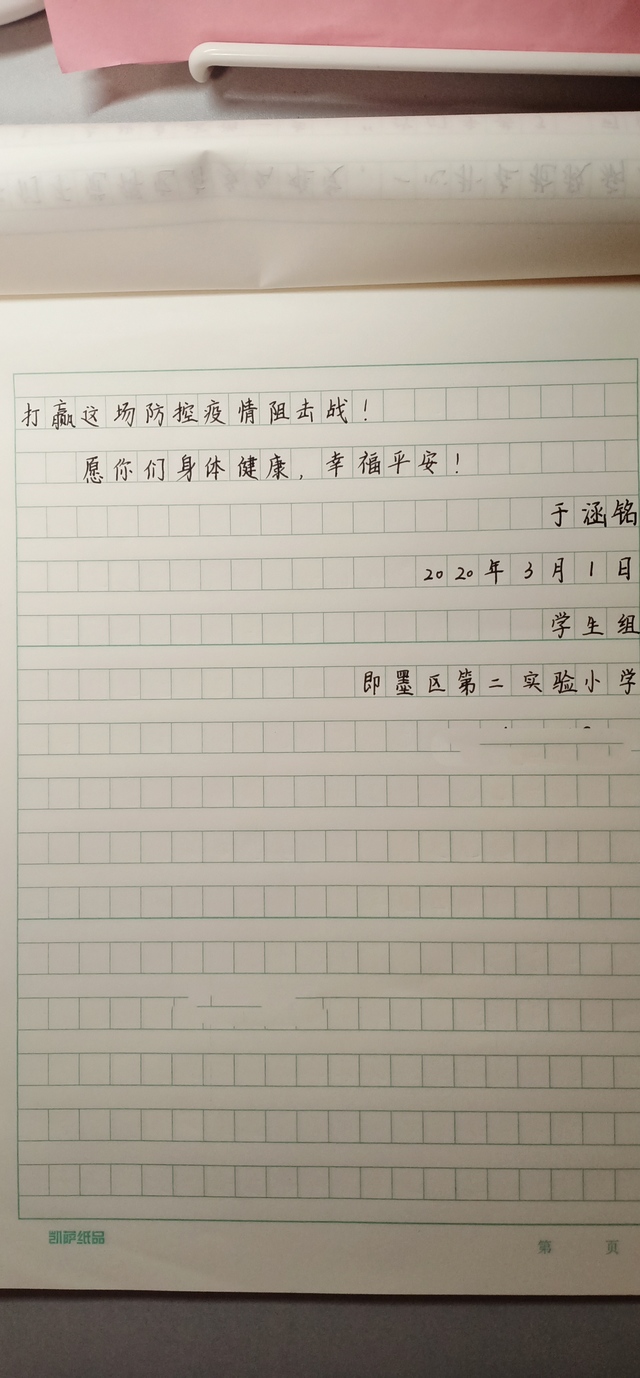 打赢这场防控疫情阻击战！
愿你们身体健康，幸福平安！
于涵铭
2020年3月1日
学生组
即墨区第二实验小学
凯萨纸品
第 页